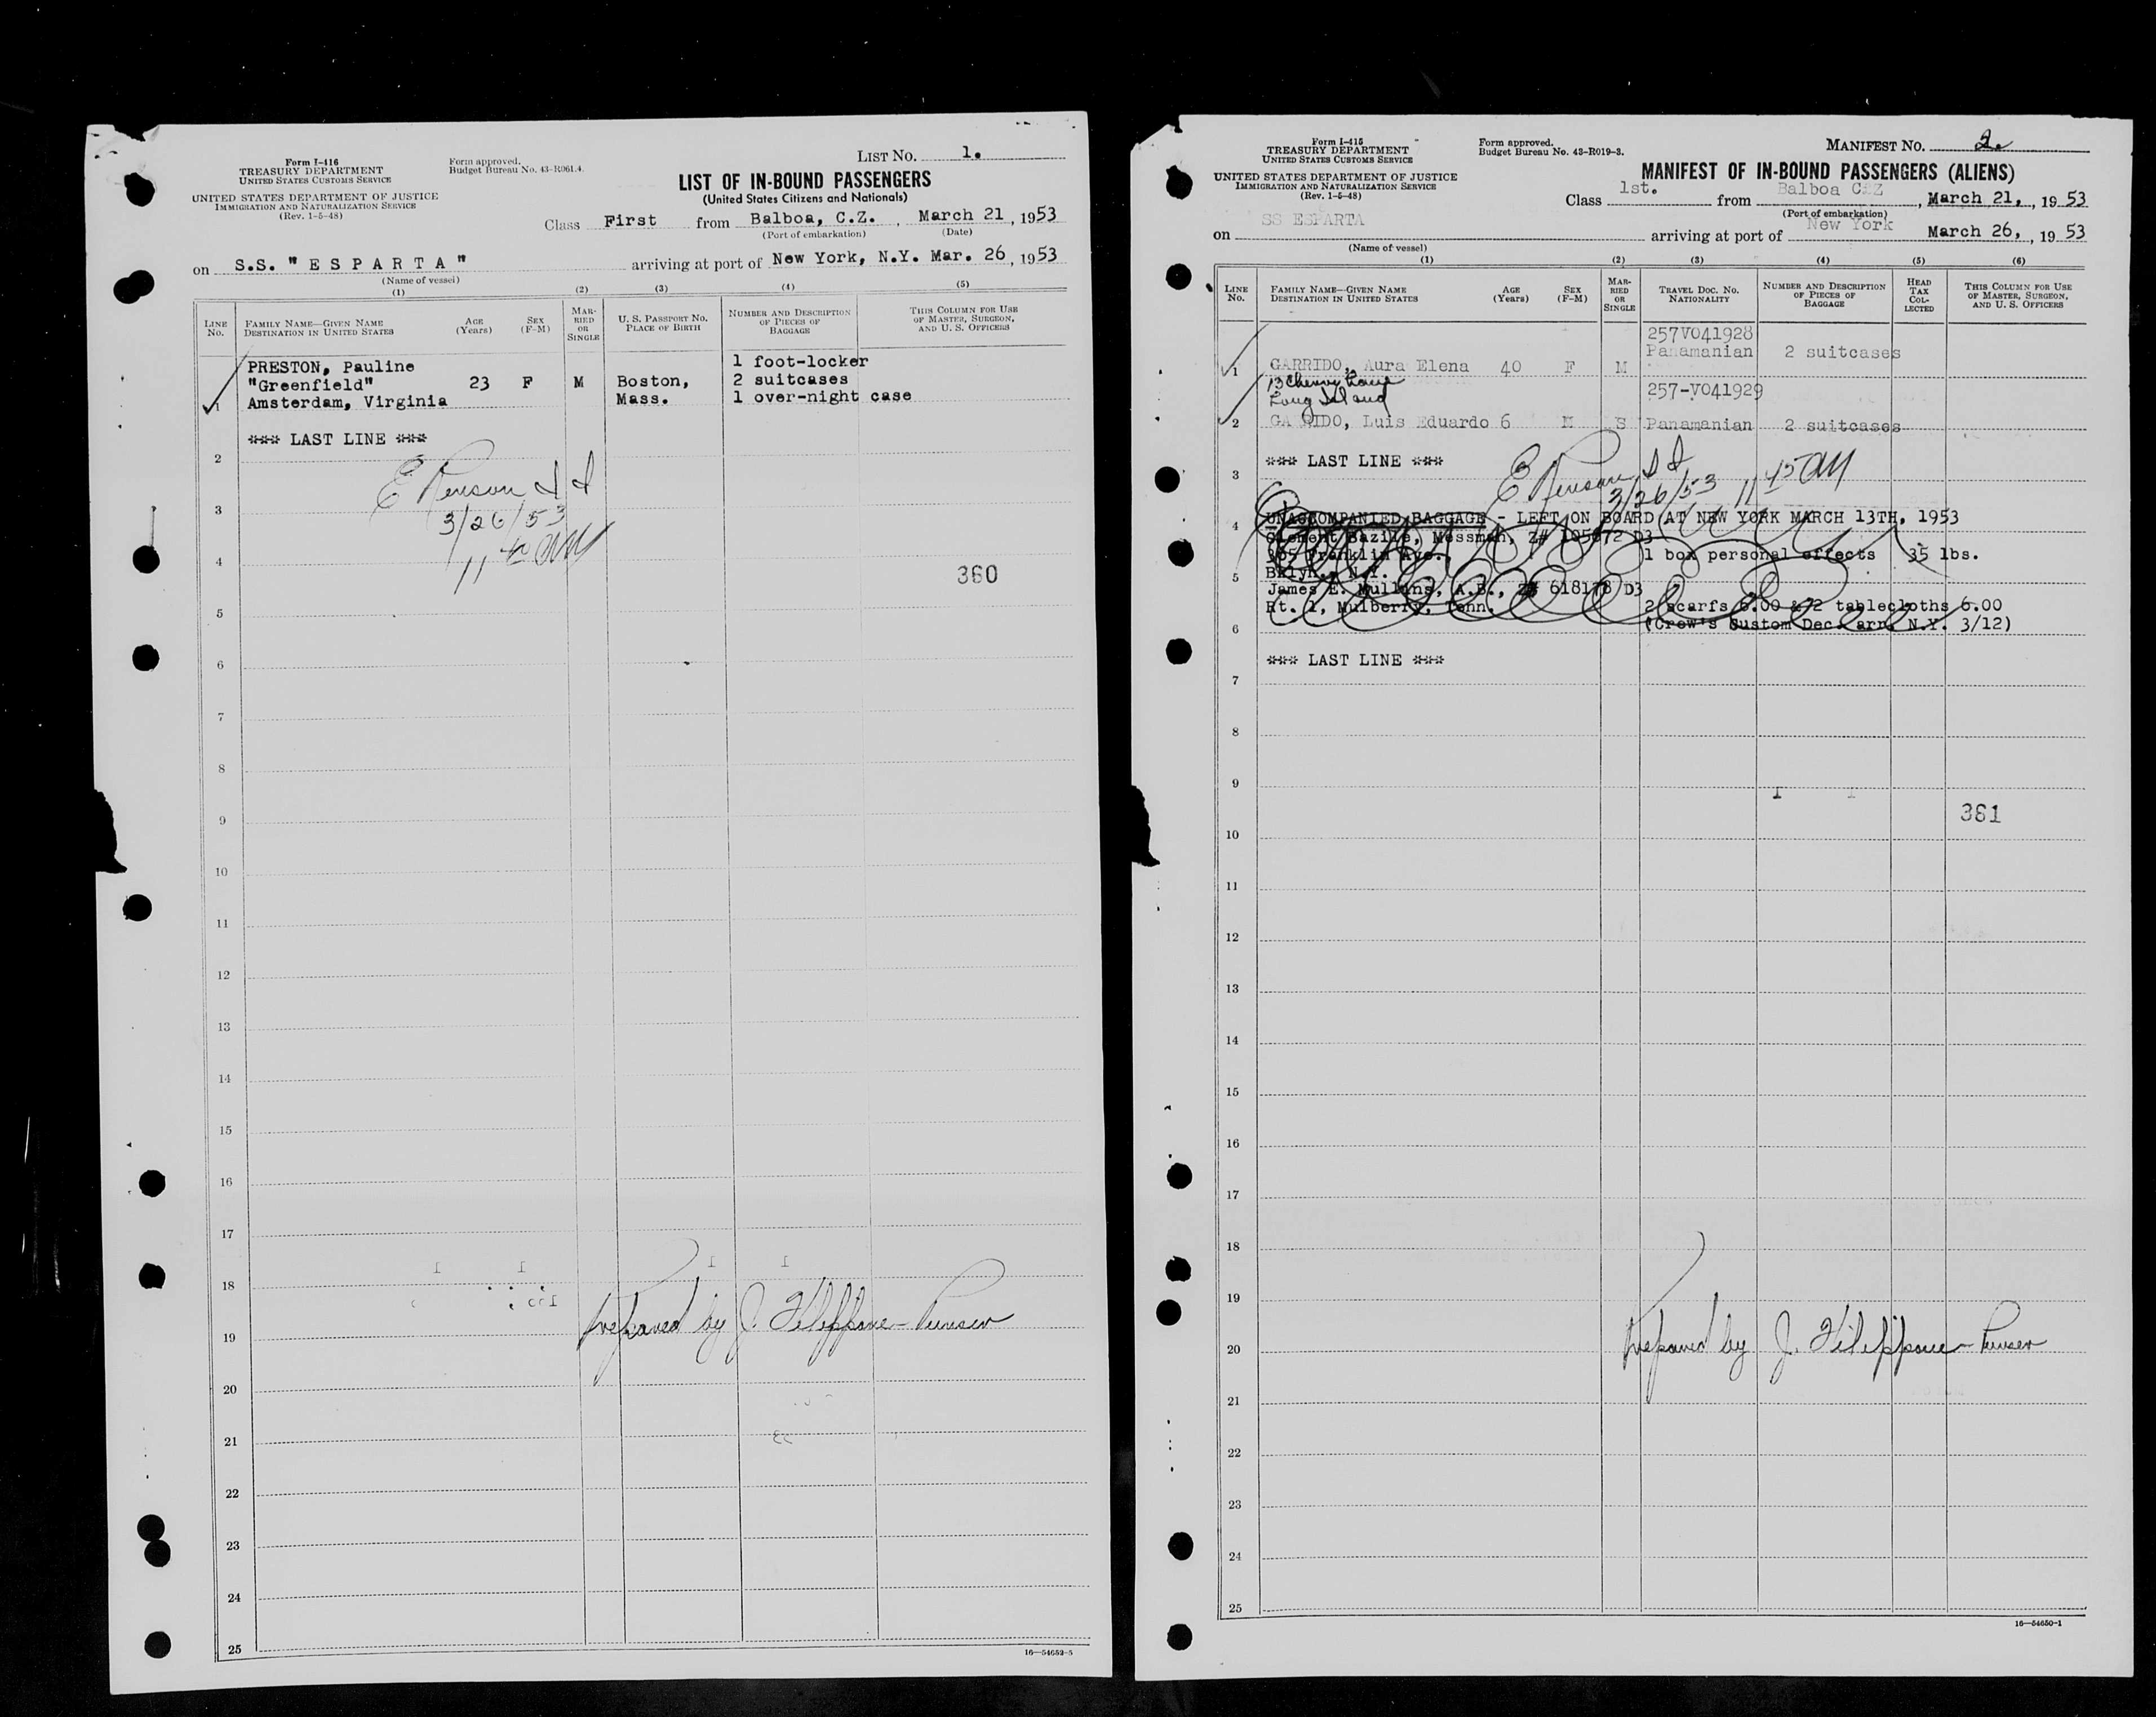 Form I-416
TREASURY DEPARTMENT
UNITED STATES CUSTOMS SERVICE
UNITED STATES DEPARTMENT OF JUSTICE
IMMIGRATION AND NATURALIZATION SERVICE
(Rev. 1-5-48)
Form approved.
Budget Bureau No. 43-R061.4.
LIST NO. 1.
LIST OF IN-BOUND PASSENGERS
(United States Citizens and Nationals)
Class First from Balboa, C.Z., March 21, 1953
(Port of embarkation) (Date)
on S.S. "ESPARTA" arriving at port of New York, N.Y. Mar. 26, 1953
(Name of vessel)
(1) (2) (3) (4) (5)
LINE NO. FAMILY NAME—GIVEN NAME DESTINATION IN UNITED STATES AGE (Years) SEX (F-M) MARRIED OR SINGLE U. S. PASSPORT NO. PLACE OF BIRTH NUMBER AND DESCRIPTION OF PIECES OF BAGGAGE THIS COLUMN FOR USE OF MASTER, SURGEON, AND U. S. OFFICERS
PRESTON, Pauline 1 foot-locker
"Greenfield" 23 F M Boston, 2 suitcases
1 Amsterdam, Virginia Mass. 1 over-night case
*** LAST LINE ***
2
3
3/26/53
4
360
5
6
7
8
9
10
11
12
13
14
15
16
17
18
Prepared by J. Filippone - Purser
19
20
21
22
23
24
25
16—54652-5
Form I-415
TREASURY DEPARTMENT
UNITED STATES CUSTOMS SERVICE
UNITED STATES DEPARTMENT OF JUSTICE
IMMIGRATION AND NATURALIZATION SERVICE
(Rev. 1-5-48)
Form approved.
Budget Bureau No. 43-R019-3.
MANIFEST NO. 2.
MANIFEST OF IN-BOUND PASSENGERS (ALIENS)
Class 1st. from Balboa C.Z, March 21, 1953
(Port of embarkation)
on SS ESPARTA arriving at port of New York March 26, 1953
(Name of vessel)
(1) (2) (3) (4) (5) (6)
LINE NO. FAMILY NAME—GIVEN NAME DESTINATION IN UNITED STATES AGE (Years) SEX (F-M) MARRIED OR SINGLE TRAVEL DOC. NO. NATIONALITY NUMBER AND DESCRIPTION OF PIECES OF BAGGAGE HEAD TAX COLLECTED THIS COLUMN FOR USE OF MASTER, SURGEON, AND U. S. OFFICERS
257V041928
Panamanian 2 suitcases
1 GARRIDO, Aura Elena 40 F M
13 Cherry Lane
Long Island
257-V041929
2 GARRIDO, Luis Eduardo 6 M S Panamanian 2 suitcases
*** LAST LINE ***
3
3/26/53 11 45 AM
4 UNACCOMPANIED BAGGAGE - LEFT ON BOARD AT NEW YORK MARCH 13TH, 1953
Clement Bazile, Messman, Z# D3
Franklin Ave., 1 box personal effects 35 lbs.
Bklyn., N.Y.
5
James E. Mullins, A.B., Z# 618178 D3
Rt. 1, Mulberry, Tenn. 2 scarfs 6.00 & 2 tablecloths 6.00
6 (Crew's Custom Dec. arr. N.Y. 3/12)
*** LAST LINE ***
7
8
9
361
10
11
12
13
14
15
16
17
18
19
20 Prepared by J. Filippone - Purser
21
22
23
24
25
16—54650-1